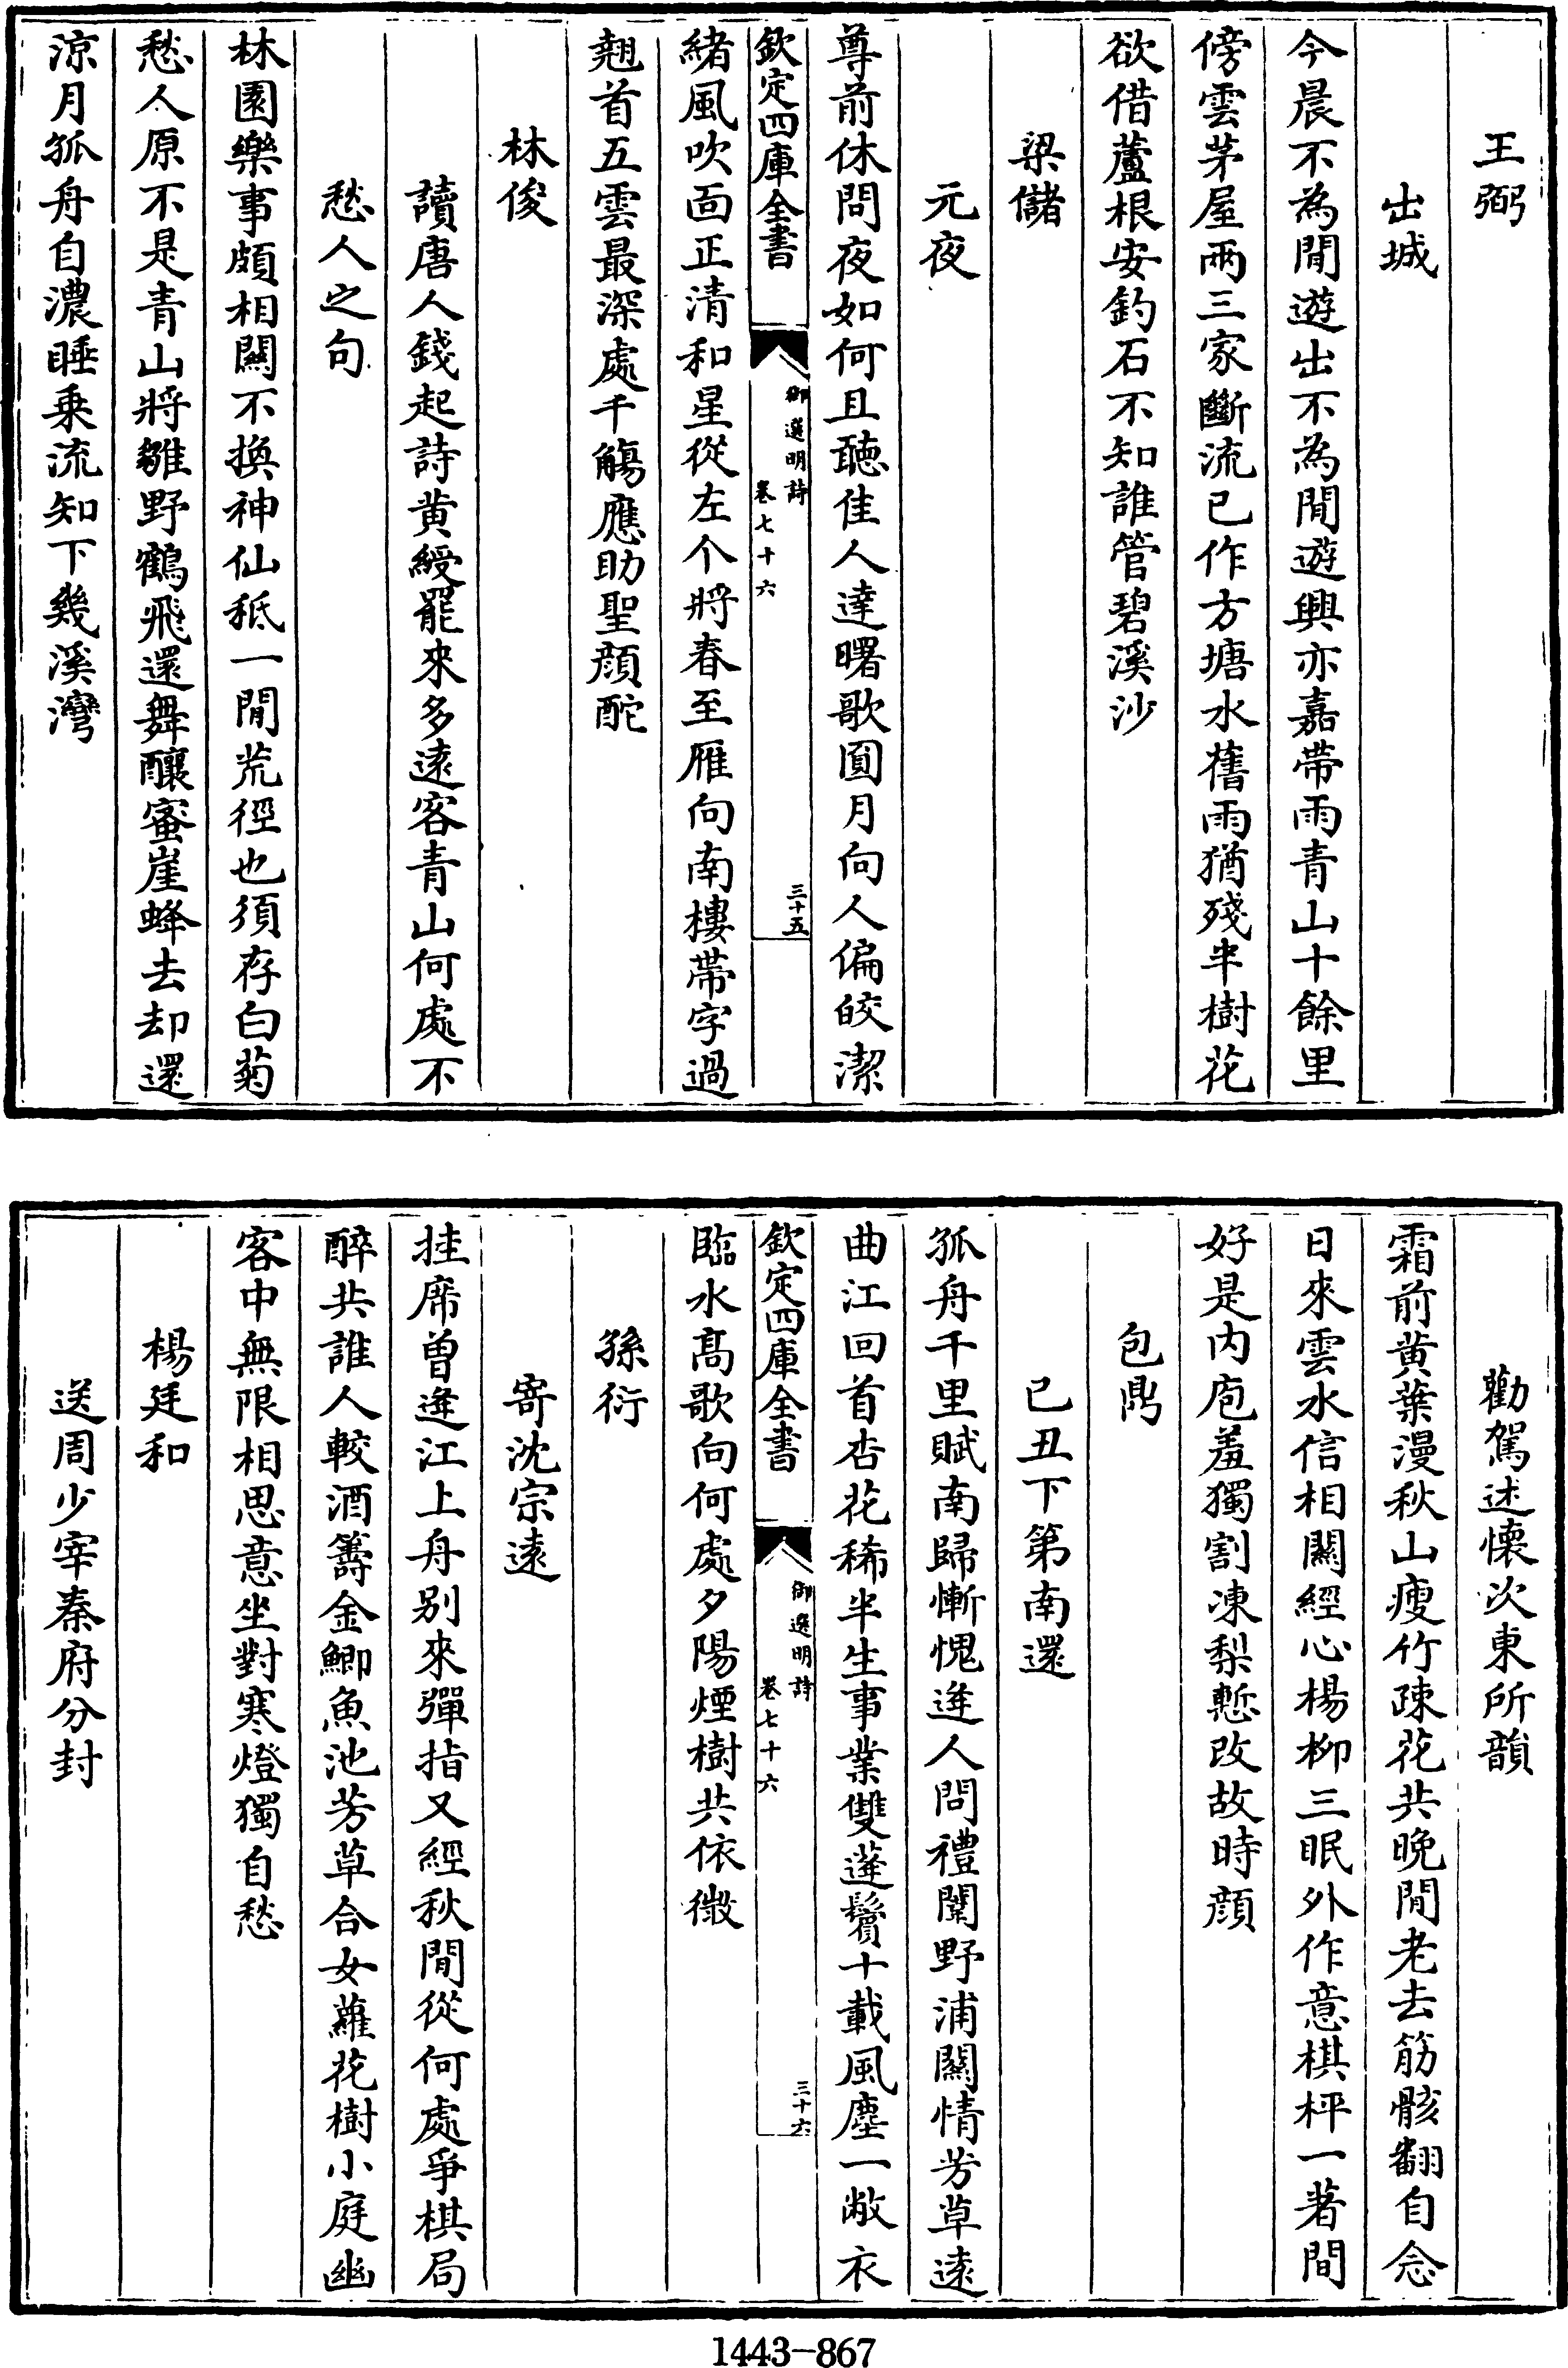 王弼
出城
今晨不為閒遊出不為閒遊興亦嘉帶雨青山十餘里
傍雲茅屋兩三家斷流已作方塘水舊雨猶殘半樹花
欲借蘆根安釣石不知誰管碧溪沙
梁儲
元夜
尊前休問夜如何且聽佳人達曙歌圓月向人偏皎潔
欽定四庫全書
御選明詩
卷七十六
三十五
緒風吹面正清和星從左个將春至雁向南樓帶字過
翹首五雲最深處千觴應助聖顔酡
林俊
讀唐人錢起詩黄綬罷來多遠客青山何處不
愁人之句
林園樂事頗相關不換神仙秪一閒荒徑也須存白菊
愁人原不是青山將雛野鶴飛還舞釀蜜崖蜂去却還
涼月孤舟自濃睡乗流知下幾溪灣
勸駕述懷次東所韻
霜前黄葉漫秋山瘦竹疎花共晚閒老去筋骸翻自念
日來雲水信相關經心楊柳三眠外作意棋枰一著間
好是内庖羞獨割凍梨慙改故時顔
包鼎
已丑下第南還
孤舟千里賦南歸慚愧逢人問禮闈野浦關情芳草遠
曲江回首杏花稀半生事業雙蓬鬢十載風塵一敝衣
欽定四庫全書
御選明詩
卷七十六
三十六
臨水髙歌向何處夕陽煙樹共依微
孫衍
寄沈宗遠
挂席曽逢江上舟别來彈指又經秋閒從何處爭棋局
醉共誰人較酒籌金鯽魚池芳草合女蘿花樹小庭幽
客中無限相思意坐對寒燈獨自愁
楊廷和
送周少宰秦府分封
1443-867